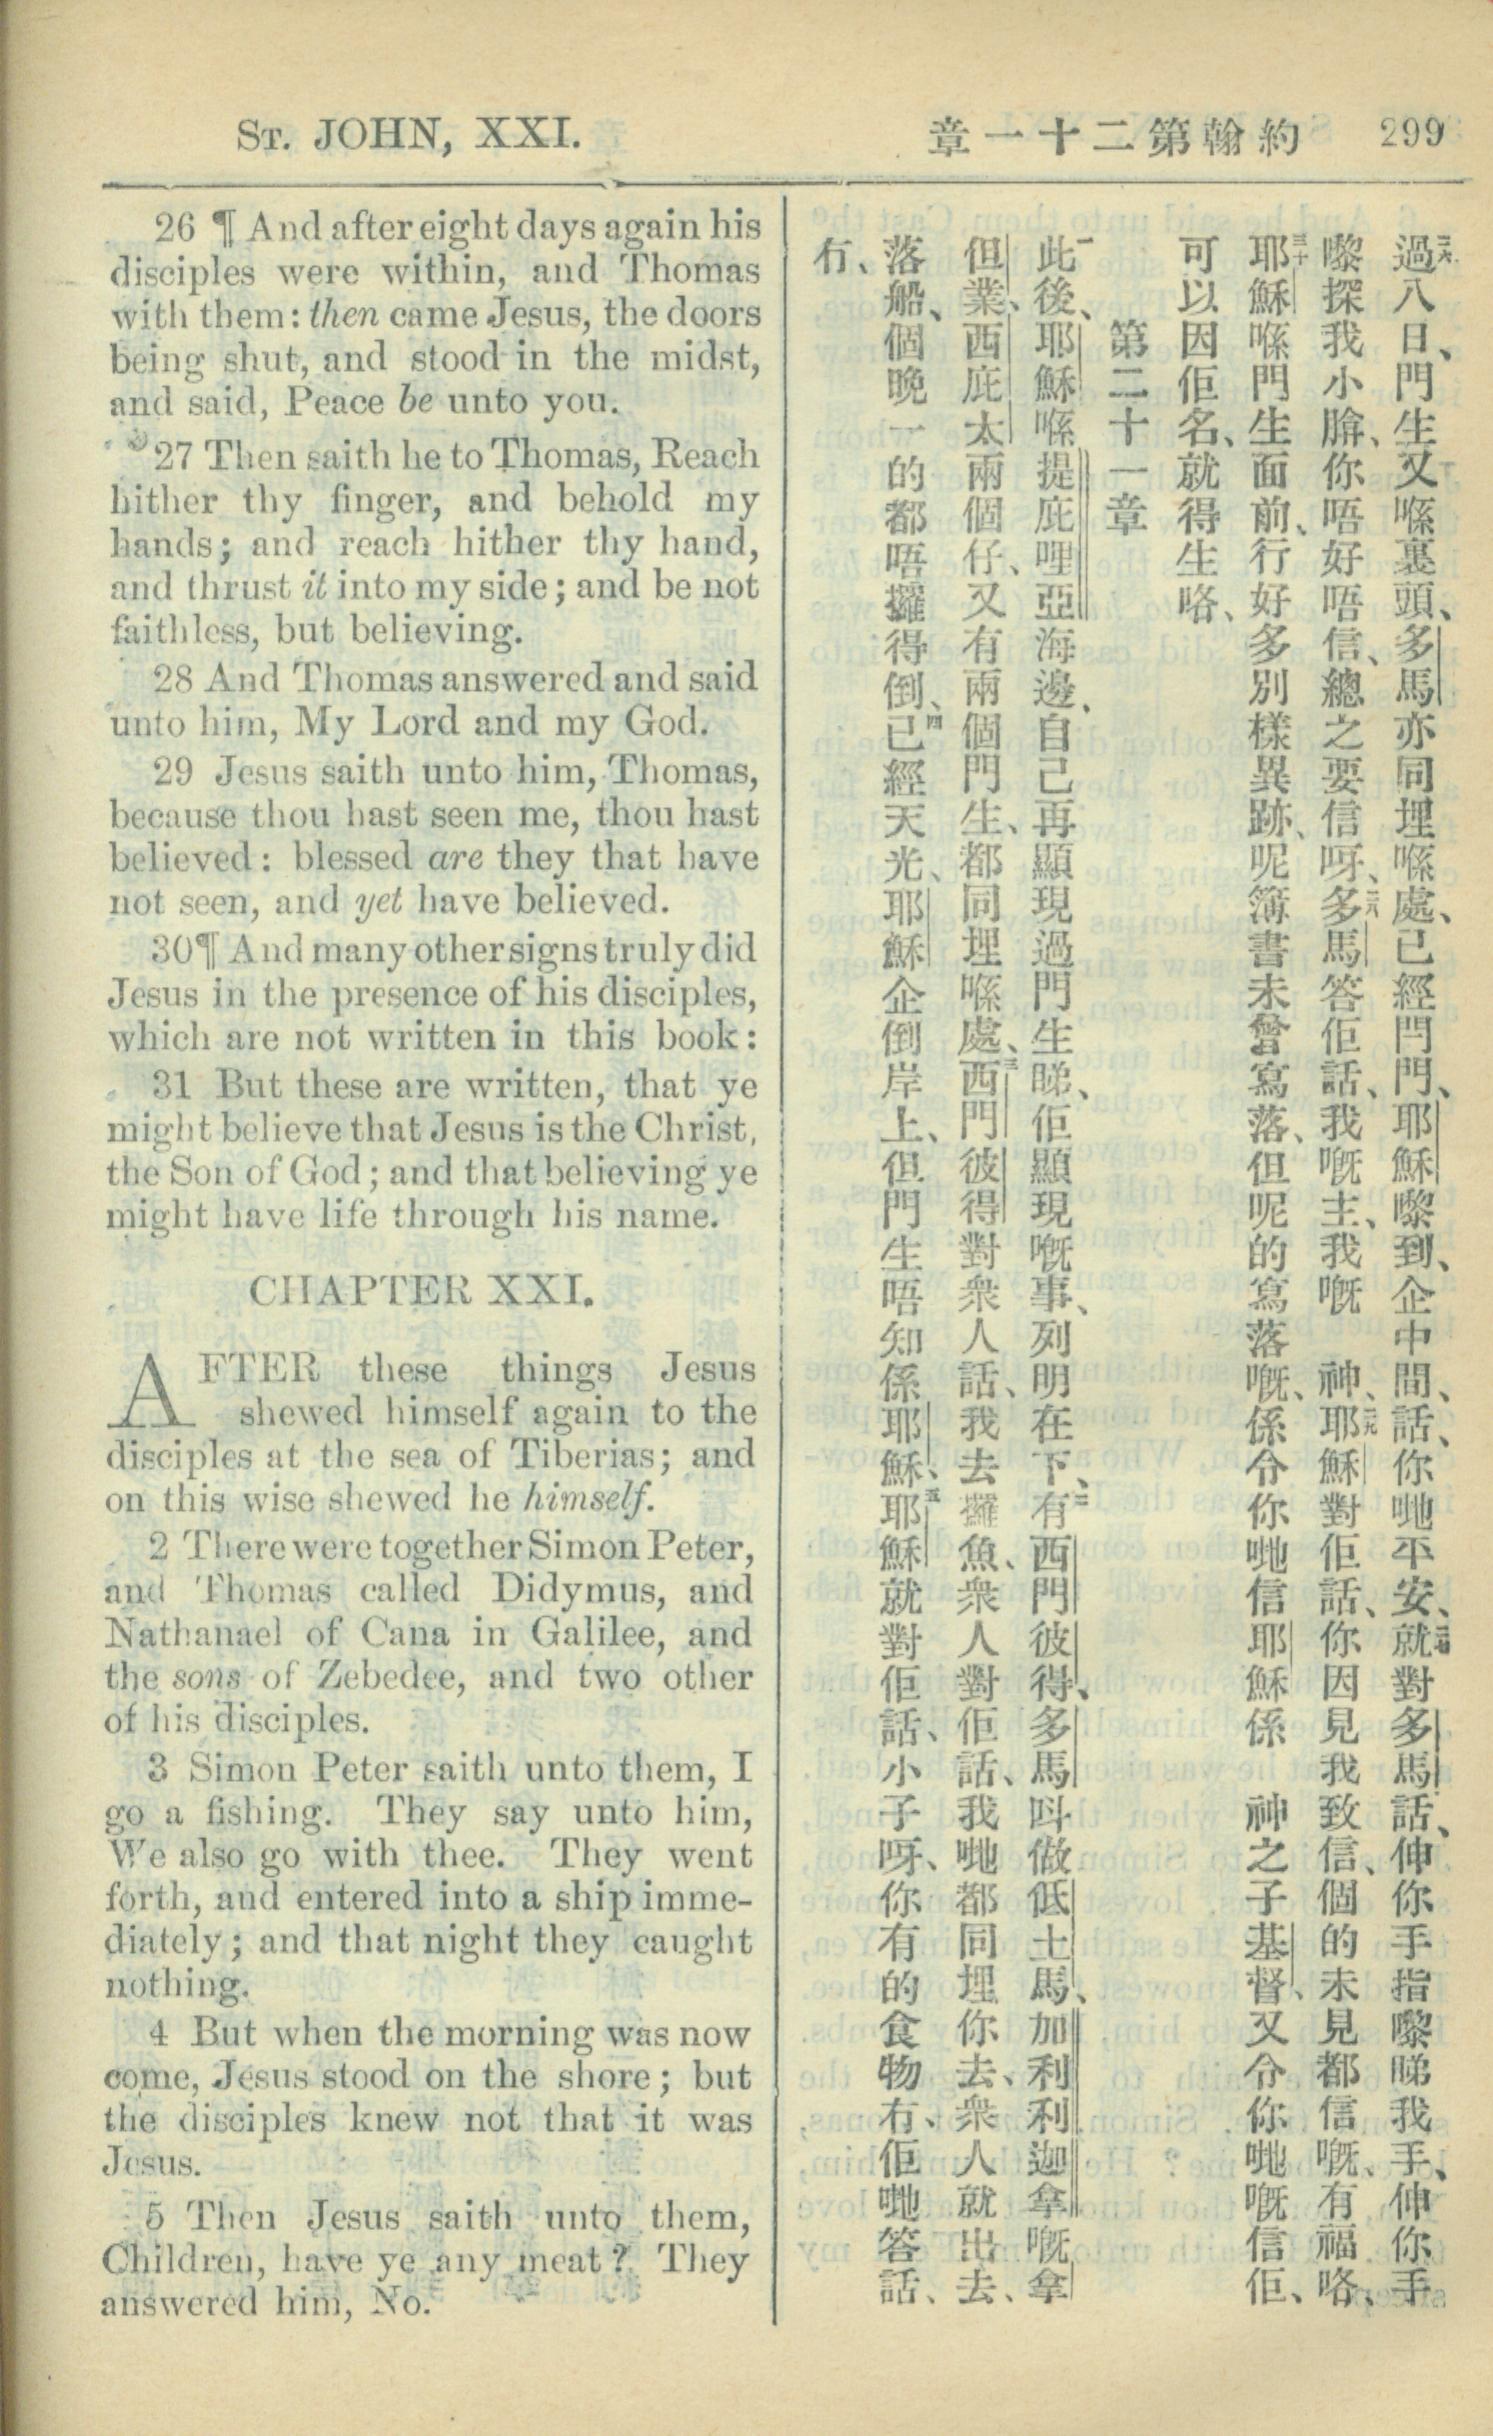 St. JOHN, XXI.
章一十二第翰約 299
26 ¶ And after eight days again his
disciples were within, and Thomas
with them: then came Jesus, the doors
being shut, and stood in the midst,
and said, Peace be unto you.
27 Then saith he to Thomas, Reach
hither thy finger, and behold my
hands; and reach hither thy hand,
and thrust it into my side; and be not
faithless, but believing.
28 And Thomas answered and said
unto him, My Lord and my God.
29 Jesus saith unto him, Thomas,
because thou hast seen me, thou hast
believed: blessed are they that have
not seen, and yet have believed.
30 ¶ And many other signs truly did
Jesus in the presence of his disciples,
which are not written in this book:
31 But these are written, that ye
might believe that Jesus is the Christ,
the Son of God; and that believing ye
might have life through his name.
CHAPTER XXI.
AFTER these things Jesus
shewed himself again to the
disciples at the sea of Tiberias; and
on this wise shewed he himself.
2 There were together Simon Peter,
and Thomas called Didymus, and
Nathanael of Cana in Galilee, and
the sons of Zebedee, and two other
of his disciples.
3 Simon Peter saith unto them, I
go a fishing. They say unto him,
We also go with thee. They went
forth, and entered into a ship imme-
diately; and that night they caught
nothing.
4 But when the morning was now
come, Jesus stood on the shore; but
the disciples knew not that it was
Jesus.
5 Then Jesus saith unto them,
Children, have ye any meat? They
answered him, No.
二六過八日、門生又喺裏頭、多馬亦同埋喺處、已經閂門、耶穌嚟到、企中間、話、你哋平安、二七就對多馬話、伸你手指嚟睇我手、伸你手
嚟探我小䏶、你唔好唔信、總之要信呀、二八多馬答佢話、我嘅主、我嘅 神、二九耶穌對佢話、你因見我致信、個的未見都信嘅、有福咯、
三十耶穌喺門生面前、行好多別樣異跡、呢簿書未曾寫落、但呢的寫落嘅、係令你哋信耶穌係 神之子基督、又令你哋嘅信佢、
可以因佢名、就得生咯、
第二十一章
一此後、耶穌喺提庇哩亞海邊、自己再顯現過門生睇、佢顯現嘅事、列明在下、二有西門彼得、多馬呌做低土馬、加利利迦拿嘅拿
但業、西庇太兩個仔、又有兩個門生、都同埋喺處、三西門彼得對衆人話、我去攞魚、衆人對佢話、我哋都同埋你去、衆人就出去、
落船、個晚一的都唔攞得倒、四已經天光、耶穌企倒岸上、但門生唔知係耶穌、五耶穌就對佢話、小子呀、你有的食物冇、佢哋答話、
冇、